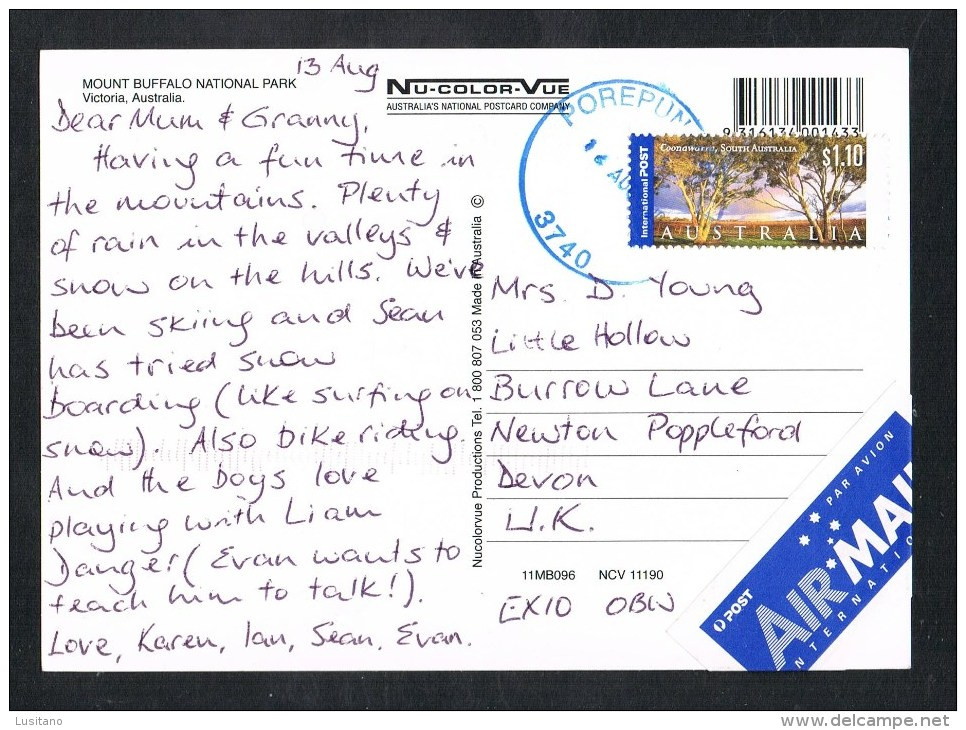 MOUNT BUFFALO NATIONAL PARK
Victoria, Australia.
13 Aug
NU-COLOR-VUE
AUSTRALIA'S NATIONAL POSTCARD COMPANY
Dear Mum & Granny,
Having a fun time in
the mountains. Plenty
of rain in the valleys &
snow on the hills. We've
been skiing and Sean
has tried snow
boarding (like surfing on
snow). Also bike riding.
And the boys love
playing with Liam
Danger (Evan wants to
teach him to talk!).
Love, Karen, Ian, Sean, Evan.
Nucolorvue Productions Tel. 1 800 807 053 Made in Australia ©
POREPUN
16 AU
3740
9 316134 001433
International POST
Coonawarra, SOUTH AUSTRALIA
$1.10
AUSTRALIA
Mrs. D. Young
Little Hollow
Burrow Lane
Newton Poppleford
Devon
U.K.
11MB096 NCV 11190
EX10 0BW
PAR AVION
AIR MAI
POST
INTERNATIO
Lusitano
www.delcampe.net